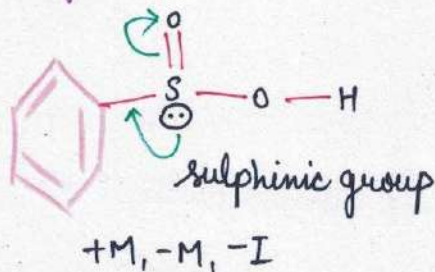 O
S – O – H
sulphinic group
+M, -M, -I